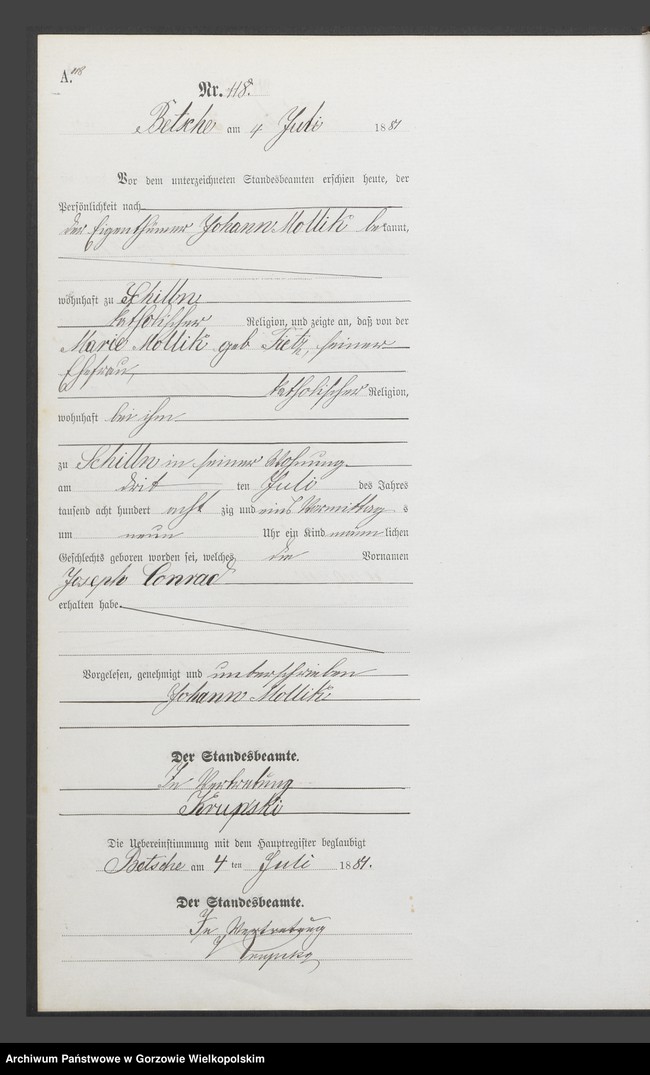 A. 118
Nr. 118.
Betsche am 4 Juli 1881
Vor dem unterzeichneten Standesbeamten erschien heute, der
Persönlichkeit nach
der Eigenthümer Johann Mollik bekannt,
wohnhaft zu Schilln
katholischer Religion, und zeigte an, daß von der
Marie Mollik geb Tietz, seiner
Ehefrau,
katholischer Religion,
wohnhaft bei ihm
zu Schilln in seiner Wohnung
am drit ten Juli des Jahres
tausend acht hundert acht zig und eins Vormittag s
um neun Uhr ein Kind männ lichen
Geschlechts geboren worden sei, welches die Vornamen
Joseph Conrad
erhalten habe.
Vorgelesen, genehmigt und unterschrieben
Johann Mollik
Der Standesbeamte.
In Vertretung
Krupski
Die Uebereinstimmung mit dem Hauptregister beglaubigt
Betsche am 4 ten Juli 1881.
Der Standesbeamte.
In Vertretung
Krupski
Archiwum Państwowe w Gorzowie Wielkopolskim